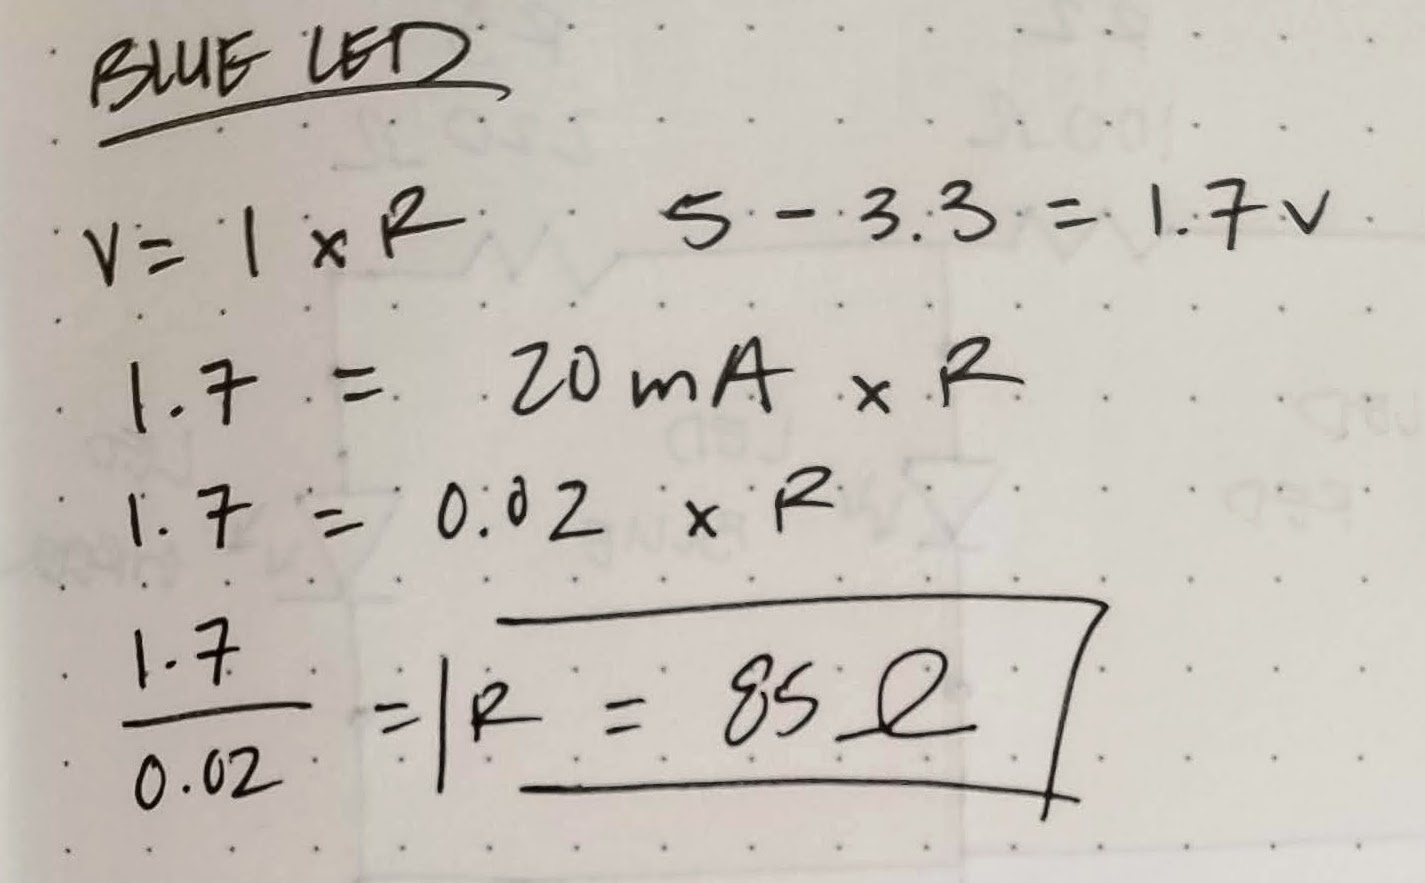 BLUE LED
V = I x R    5 - 3.3 = 1.7v
1.7 = 20mA x R
1.7 = 0.02 x R
1.7
0.02
= R = 85 Ω